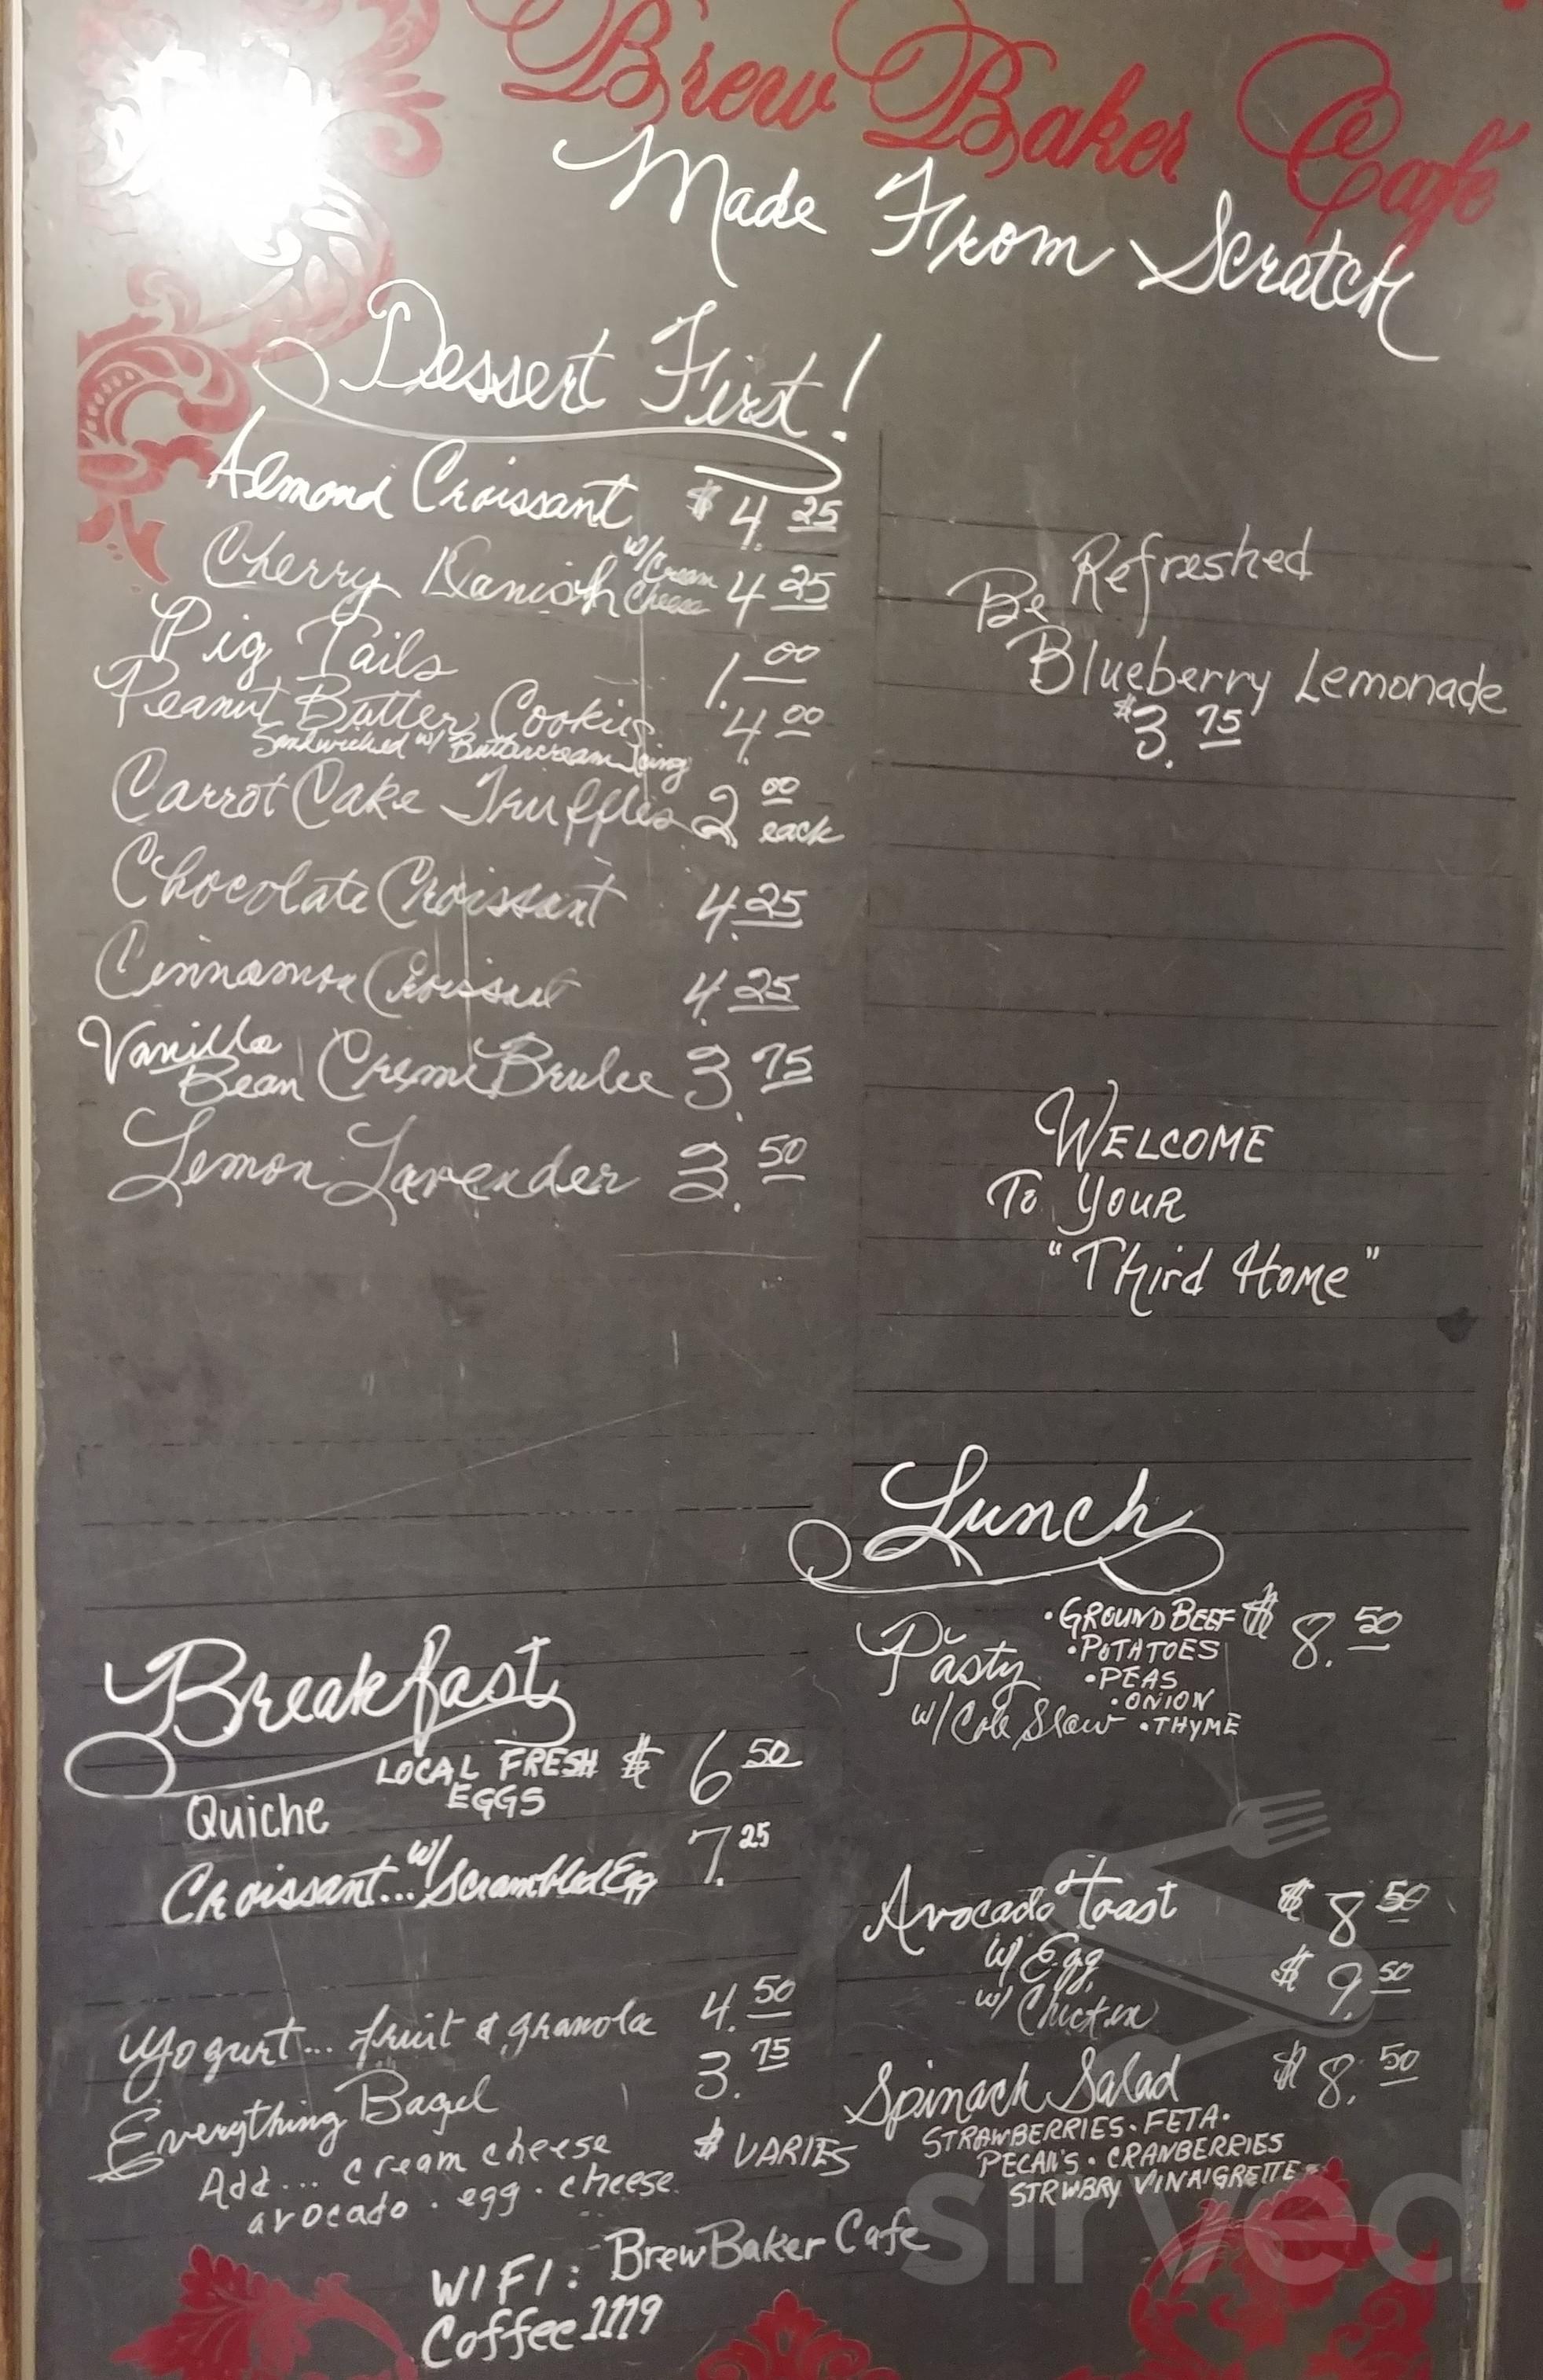 Brew Baker Café
Made From Scratch
Dessert First!
Almond Croissant $4.25
Cherry Danish w/Cream Cheese 4 25
Pig Tails 1.00
Peanut Butter Cookies 4.00
Sandwiched w/ Buttercream Icing
Carrot Cake Truffles 2 00 each
Chocolate Croissant 4.25
Cinnamon Croissant 4.25
Vanilla Bean Creme Brulee 3.75
Lemon Lavender 3.50
Be Refreshed
Blueberry Lemonade
$3.75
WELCOME
To YOUR
"Third HOME"
Lunch
Pasty w/ Cole Slaw $8.50
•GROUND BEEF
•POTATOES
•PEAS
•ONION
•THYME
Avocado Toast $8 50
w/ Egg $9.50
w/ Chicken
Spinach Salad $8.50
STRAWBERRIES • FETA •
PECAN'S • CRANBERRIES
STRWBRY VINAIGRETTE
Breakfast
Quiche LOCAL FRESH EGGS $6 50
Croissant... w/ Scrambled Egg 7.25
Yogurt... fruit & granola 4.50
Everything Bagel 3.75
Add... cream cheese $ VARIES
avocado • egg • cheese
WIFI: BrewBaker Cafe
Coffee1119
sirved